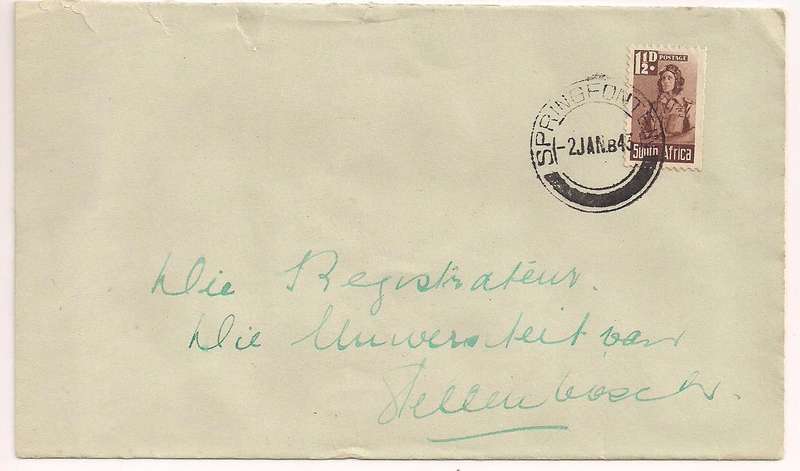 1½D. POSTAGE
South Africa
SPRINGFONTEIN
-2JAN.B43
Die Registrateur.
Die Universiteit van
Stellenbosch.